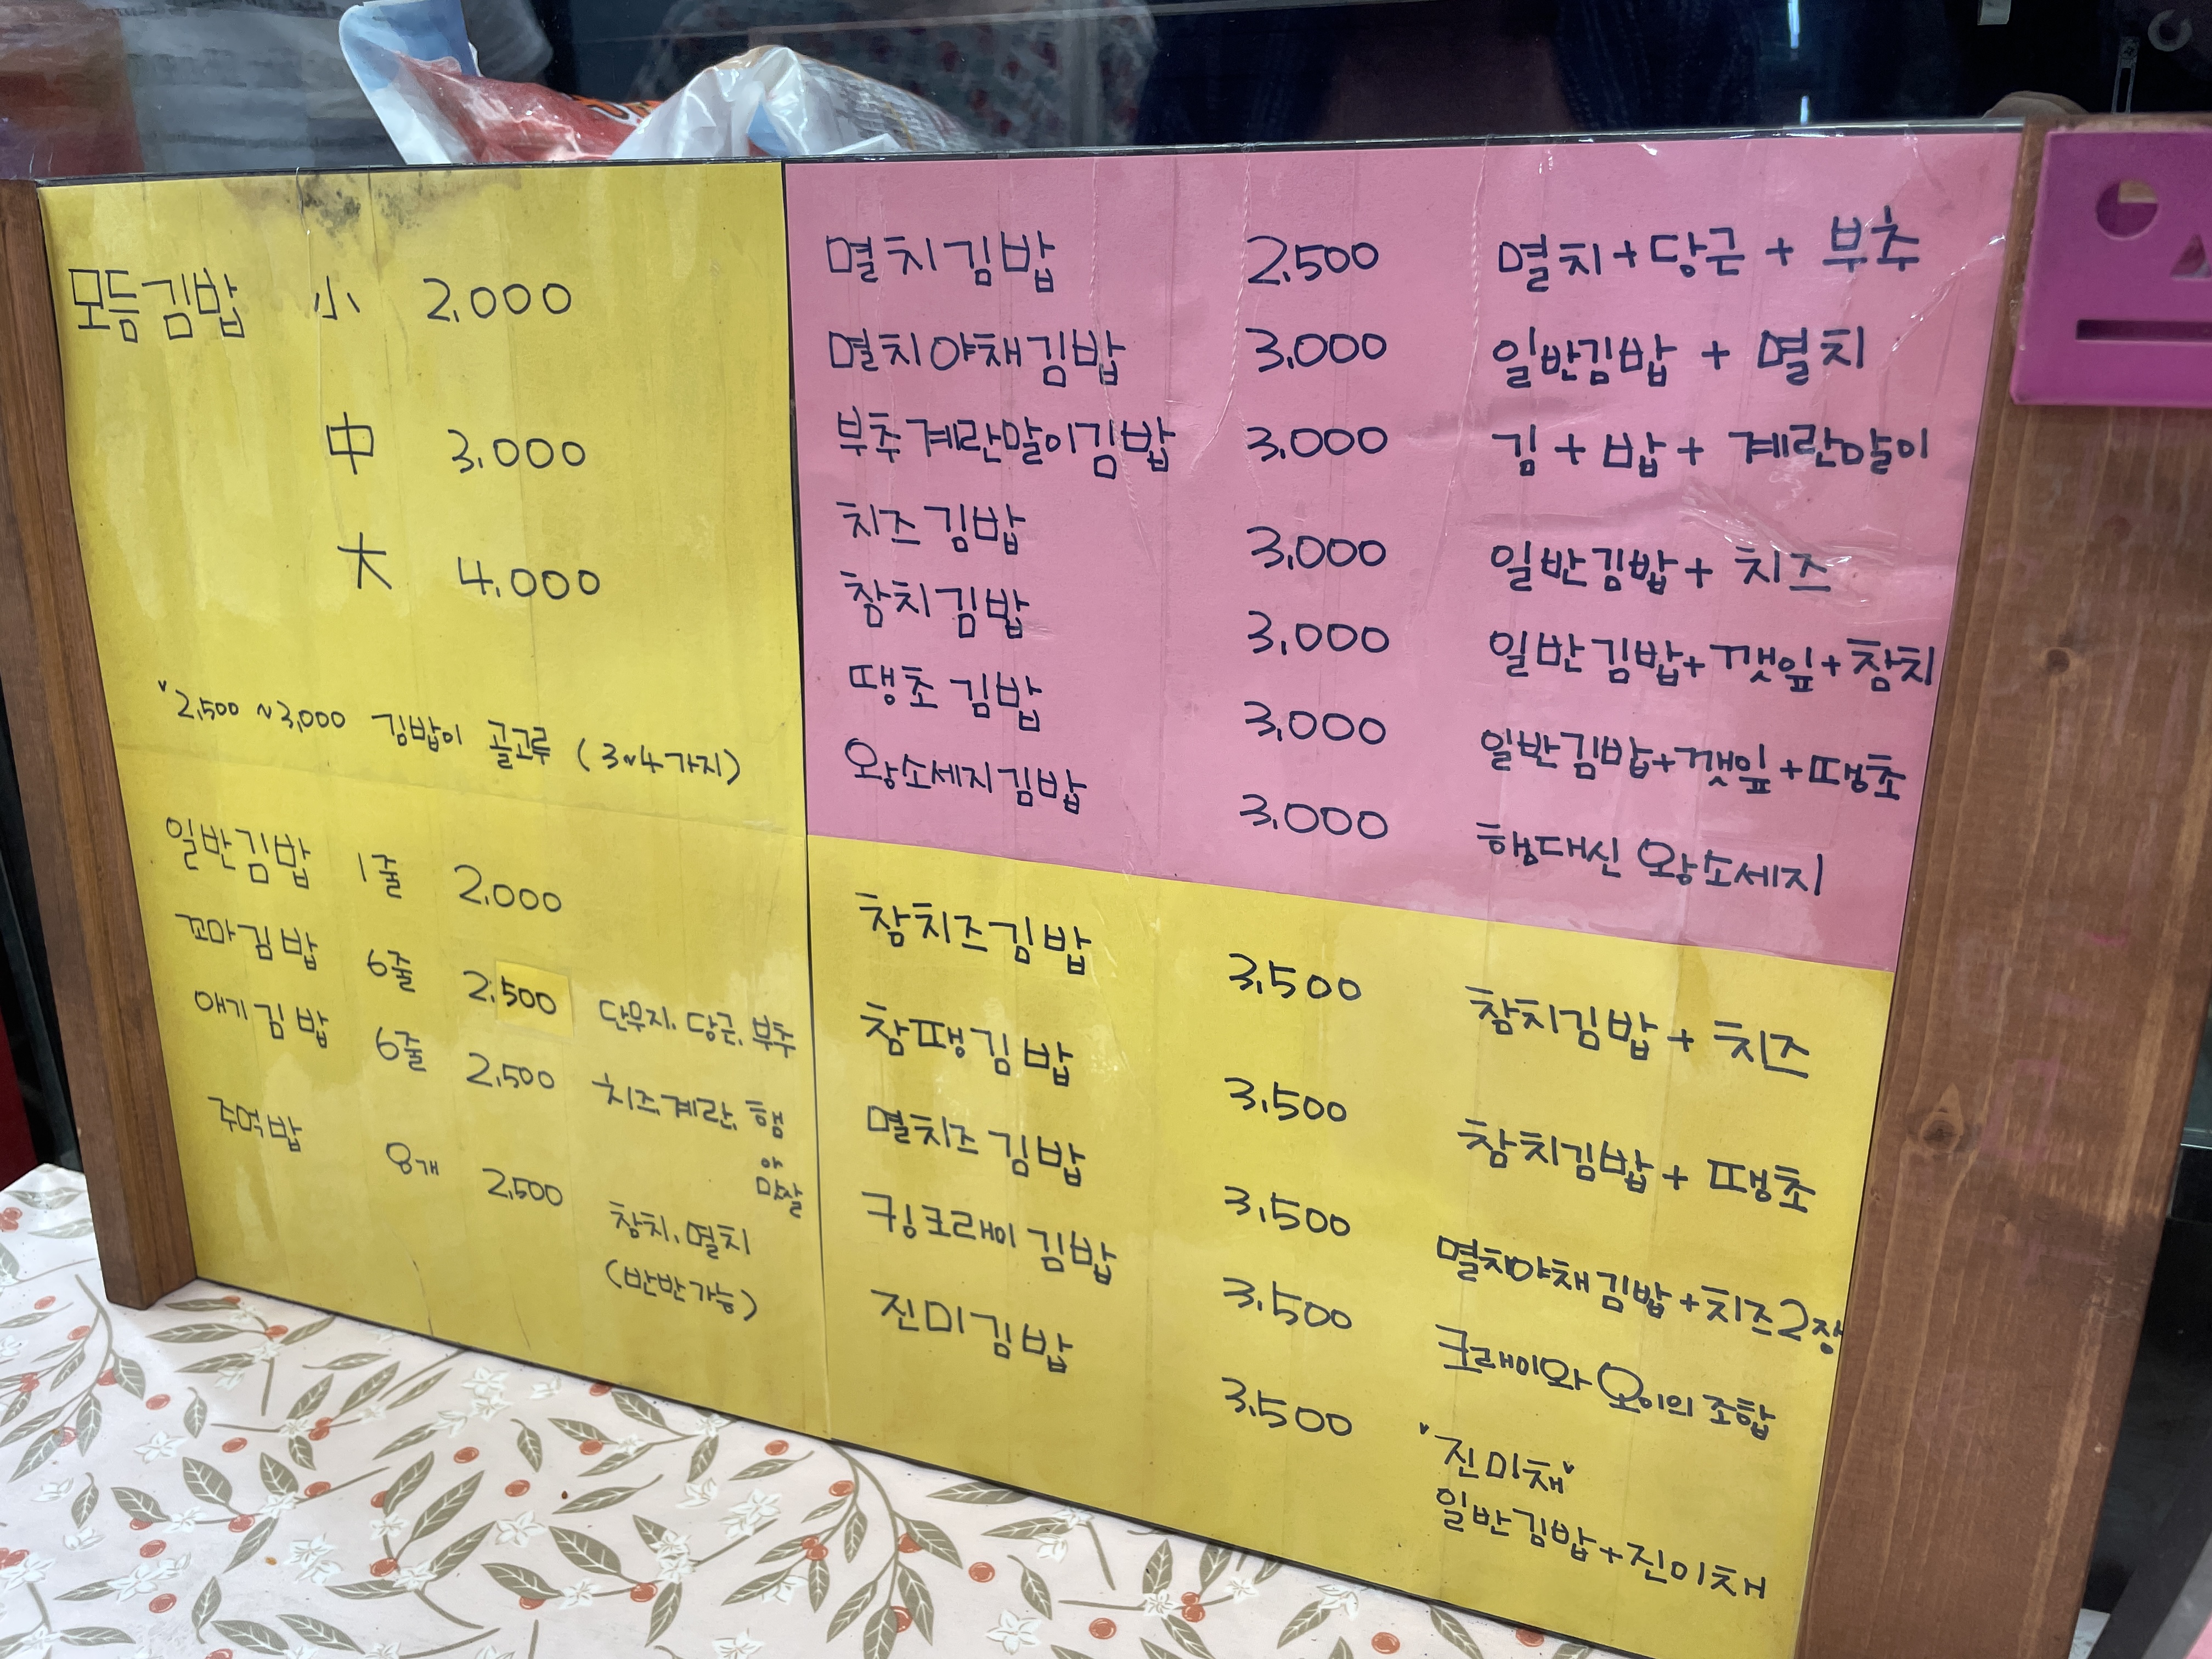 모듬김밥 小 2,000
中 3,000
大 4,000
"2,500~3,000 김밥이 골고루 (3~4가지)
일반김밥 1줄 2,000
꼬마김밥 6줄 2,500 단무지, 당근, 부추
애기김밥 6줄 2,500 치즈, 계란, 햄
야
맛살
주먹밥 8개 2,500 참치, 멸치
(반반가능)
멸치김밥 2,500 멸치+당근+부추
멸치야채김밥 3,000 일반김밥+멸치
부추계란말이김밥 3,000 김+밥+계란말이
치즈김밥 3,000 일반김밥+치즈
참치김밥 3,000 일반김밥+깻잎+참치
땡초김밥 3,000 일반김밥+깻잎+땡초
왕소세지김밥 3,000 햄대신 왕소세지
참치즈김밥 3,500 참치김밥+치즈
참땡김밥 3,500 참치김밥+땡초
멸치즈김밥 3,500 멸치야채김밥+치즈2장
킹크래이김밥 3,500 크래이와 오이의 조합
진미김밥 3,500 "진미채"
일반김밥+진미채